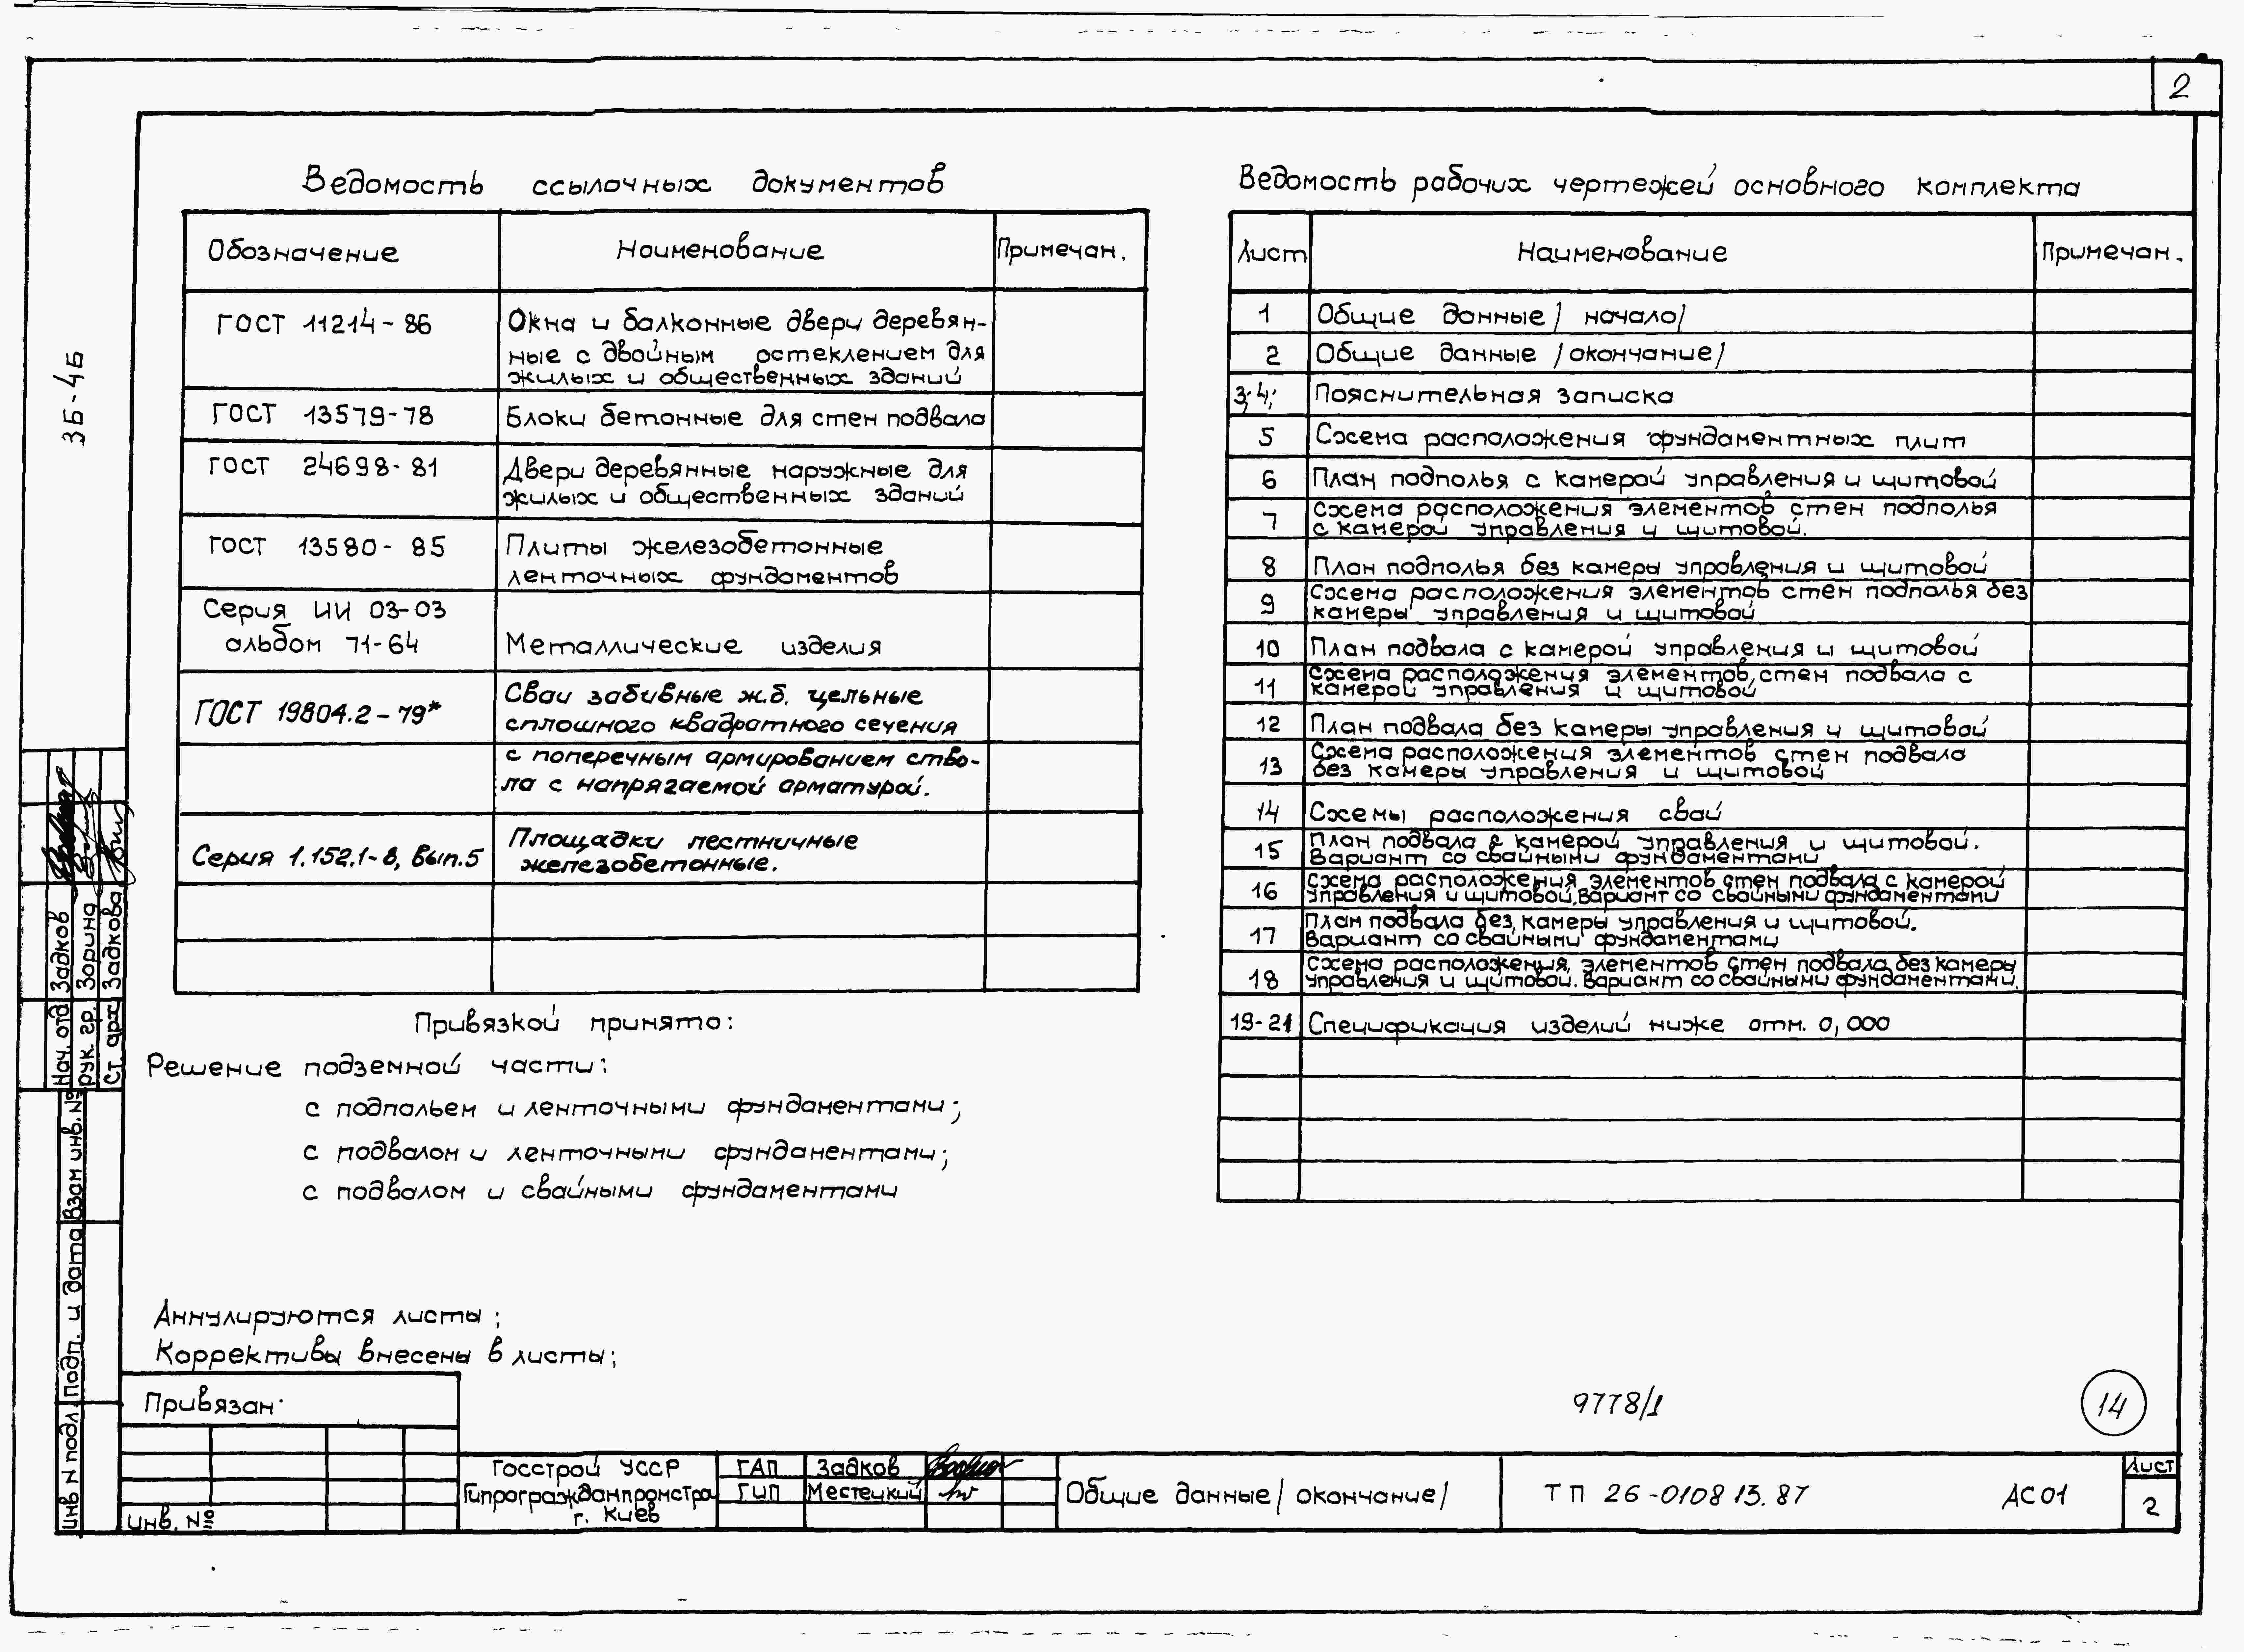 2
Ведомость ссылочных документов
Обозначение
Наименование
Примечан.
ГОСТ 11214-86
Окна и балконные двери деревян-
ные с двойным остеклением для
жилых и общественных зданий
ГОСТ 13579-78
Блоки бетонные для стен подвала
ГОСТ 24698-81
Двери деревянные наружные для
жилых и общественных зданий
ГОСТ 13580-85
Плиты железобетонные
ленточных фундаментов
Серия ИИ 03-03
альбом 71-64
Металлические изделия
ГОСТ 19804.2-79*
Сваи забивные ж.б. цельные
сплошного квадратного сечения
с поперечным армированием ство-
ла с напрягаемой арматурой.
Серия 1.152.1-8, Вып.5
Площадки лестничные
железобетонные.
Привязкой принято:
Решение подземной части:
с подпольем и ленточными фундаментами;
с подвалом и ленточными фундаментами;
с подвалом и свайными фундаментами
Аннулируются листы;
Коррективы внесены в листы;
Ведомость рабочих чертежей основного комплекта
Лист
Наименование
Примечан.
1 Общие данные /начало/
2 Общие данные /окончание/
3; 4; Пояснительная записка
5 Схема расположения фундаментных плит
6 План подполья с камерой управления и щитовой
7 Схема расположения элементов стен подполья
с камерой управления и щитовой.
8 План подполья без камеры управления и щитовой
9 Схема расположения элементов стен подполья без
камеры управления и щитовой
10 План подвала с камерой управления и щитовой
11 Схема расположения элементов стен подвала с
камерой управления и щитовой
12 План подвала без камеры управления и щитовой
13 Схема расположения элементов стен подвала
без камеры управления и щитовой
14 Схемы расположения свай
15 План подвала с камерой управления и щитовой.
Вариант со свайными фундаментами
16 Схема расположения элементов стен подвала с камерой
управления и щитовой. Вариант со свайными фундаментами
17 План подвала без камеры управления и щитовой.
Вариант со свайными фундаментами
18 Схема расположения элементов стен подвала без камеры
управления и щитовой. Вариант со свайными фундаментами.
19-21 Спецификация изделий ниже отм. 0,000
9778/1
14
3Б-4Б
Нач. отд Задков
рук. гр. Зорина
Ст. арх Задкова
Взам инв. №
Подп. и дата
Инв N подл.
Привязан·
Инв. №
Госстрой УССР
Гипрогражданпромстрой
г. Киев
ГАП Задков
ГИП Местецкий
Общие данные /окончание/
ТП 26-0108 13.87
АС01
Лист
2